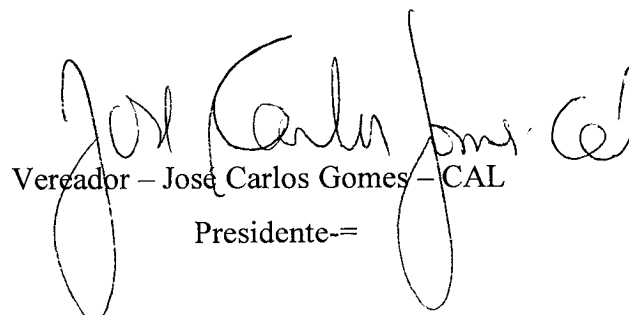 José Carlos Gomes Cal
Vereador – José Carlos Gomes – CAL
Presidente-=